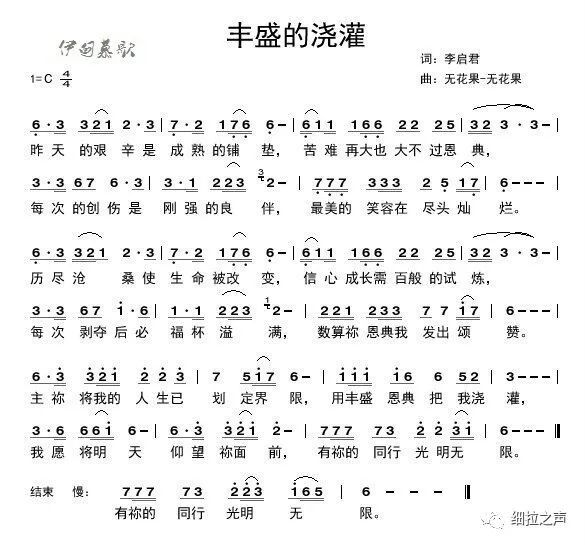 丰盛的浇灌
伊甸慕歌
词：李启君
1=C 4/4
曲：无花果-无花果
6·3 321 2·3 | 7·2 176 6- | 611 166 22 25 | 32 3·3- |
昨天的艰辛是成熟的铺垫，苦难再大也大不过恩典，
3·3 67 3·3 | 3·1 223 3 2- | 777 333 2 5 17 | 6--- |
每次的创伤是刚强的良伴，最美的笑容在尽头灿烂。
6·3 321 2·3 | 7·2 176 6- | 611 166 22 25 | 32 3·3- |
历尽沧桑使生命被改变，信心成长需百般的试炼，
3·3 67 1·6 | 1·1 223 1 2- | 221 233 7 7 17 | 6--- |
每次剥夺后必福杯溢满，数算祢恩典我发出颂赞。
6·3 321 2·2 | 7 517 6- | 111 166 1 2 12 | 3--- |
主祢将我的人生已划定界限，用丰盛恩典把我浇灌，
3·6 661 6·3 | 2·3 221 2- | 777 73 2 3 31 | 6-- ‖
我愿将明天仰望祢面前，有祢的同行光明无限。
结束 慢： 777 73 2 23 165 | 6 - - - ‖
有祢的同行光明无限。
细拉之声